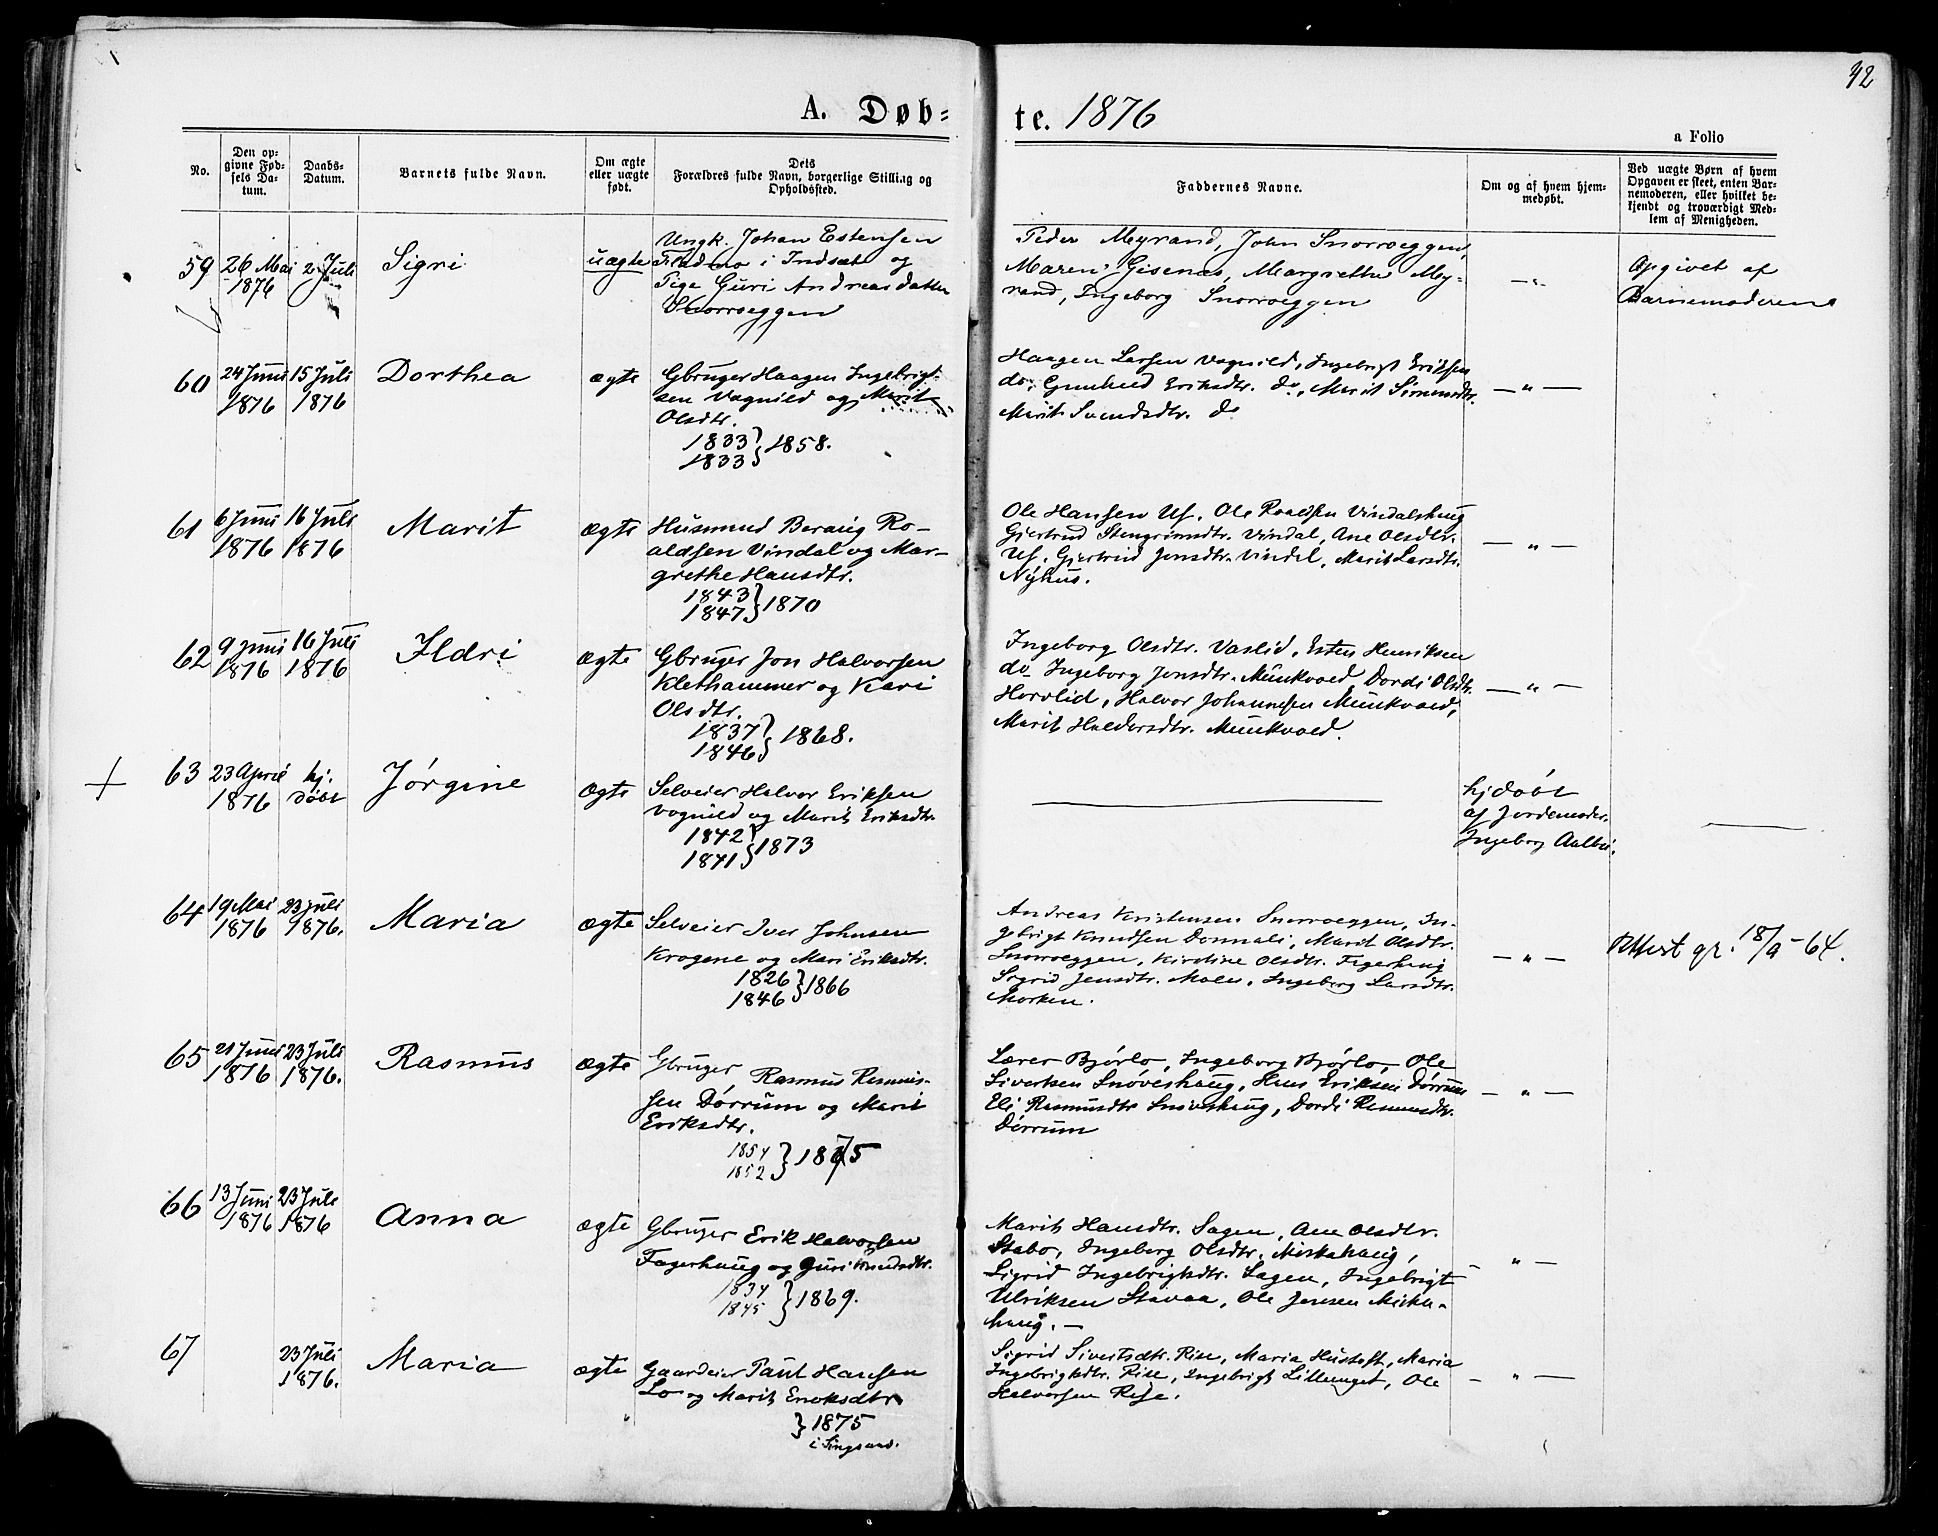 42
A. Døb-
te. 1876
a Folio
No.
Den op-
givne Fød-
sels Da-
tum.
Daabs-
Datum.
Barnets fulde Navn.
Om ægte
eller uægte
født.
Dets
Forældres fulde Navn, borgerlige Stilling og
Opholdssted.
Faddernes Navne.
Om og af hvem hjem-
medøbt.
Ved uægte Børn af hvem
Opgaven er skeet, enten Bar-
nemoderen, eller hvilket be-
kjendt og troværdigt Med-
lem af Menigheden.
59
26 Mai
1876
2 Juli
Sigri
uægte
Ungk. Johan Estensen
i Indset og
Pige Guri Andreasdatter
Snorroeggen
Peder Myrand, John Snorroeggen,
Maren Gisenas, Margrethe My-
rand, Ingeborg Snorroeggen
— " —
Opgivet af
Barnemoderen
60
24 Juni
1876
15 Juli
1876
Dorthea
ægte
Gbruger Haagen Ingebrigt-
sen Vognild og Marit
Olsdtr.
1833
1833 } 1858.
Haagen Larsen Vognild, Ingebrigt Eriksen
do, Gunhild Eriksdtr. do, Marit Simensdtr.
Marit Svendsdtr. do
— " —
61
6 Juni
1876
16 Juli
1876
Marit
ægte
Husmand Beraug Ro-
aldsen Vindal og Mar-
grethe Hansdtr.
1843
1847 } 1870
Ole Hansen Uf. Ole Roaldsen Vindalshaug
Gjertrud Stengrimsdtr. Vindal, Ane Olsdtr.
Uf. Gjertrud Jonsdtr. Vindal, Marit Larsdtr.
Nyhus.
— " —
62
9 Juni
1876
16 Juli
1876
Ildri
ægte
Gbruger Jon Halvorsen
Klethammer og Kari
Olsdtr.
1837
1846 } 1868.
Ingeborg Olsdtr. Vaslid, Esten Henriksen
do Ingeborg Jonsdtr. Munkvold, Dordi Olsdtr.
Horvlid, Halvor Johannesen Munkvold,
Marit Haldorsdtr. Munkvold.
— " —
63
23 April
1876
hj.
døbt
Jørgine
ægte
Selveier Halvor Eriksen
Vognild og Marit Eriksdtr.
1842
1841 } 1873
hjdøbt
af Jordemoder
Ingeborg Aalbu.
64
19 Mai
1876
23 Juli
1876.
Maria
ægte
Selveier Iver Johnsen
Krogene og Mari Eriksdtr.
1826
1846 } 1866
Andreas Kristensen Snorroeggen, In-
gebrigt Knudsen Donnali, Marit Olsdtr.
Snorroeggen, Kirstine Olsdtr. Fagerhaug
Sigrid Jensdtr. Moen, Ingeborg Larsdtr.
Morken.
— " —
Attest gr. 18/9-64.
65
21 Juni
1876
23 Juli
1876.
Rasmus
ægte
Gbruger Rasmus Rasmus-
sen Dørrum og Marit
Eriksdtr.
1854
1852 } 1875
Lærer Bjørlo, Ingeborg Bjørlo, Ole
Sivertsen Snøveshaug, Hans Eriksen Dørrum
Eli Rasmusdtr Snøveshaug, Dordi Rasmusdtr.
Dørrum
— " —
66
13 Juni
1876
23 Juli
1876
Anna
ægte
Gbruger Erik Halvorsen
Fagerhaug og Guri Knudsdtr.
1834
1845 } 1869.
Marit Hansdtr. Sagen, Ane Olsdtr.
Stabo, Ingeborg Olsdtr. Mirkahaug,
Sigrid Ingebrigtsdtr. Sagen, Ingebrigt
Ulriksen Stavaa, Ole Jensen Mirka-
haug. —
— " —
67
23 Juli
1876.
Maria
ægte
Gaardeier Paul Hansen
Lo og Marit Enoksdtr.
} 1875
i Singsaas.
Sigrid Sivertsdtr. Rise, Maria Hustoft, Maria
Ingebrigtsdtr. Rise, Ingebrigt Lillunget, Ole
Halvorsen Rise.
— " —